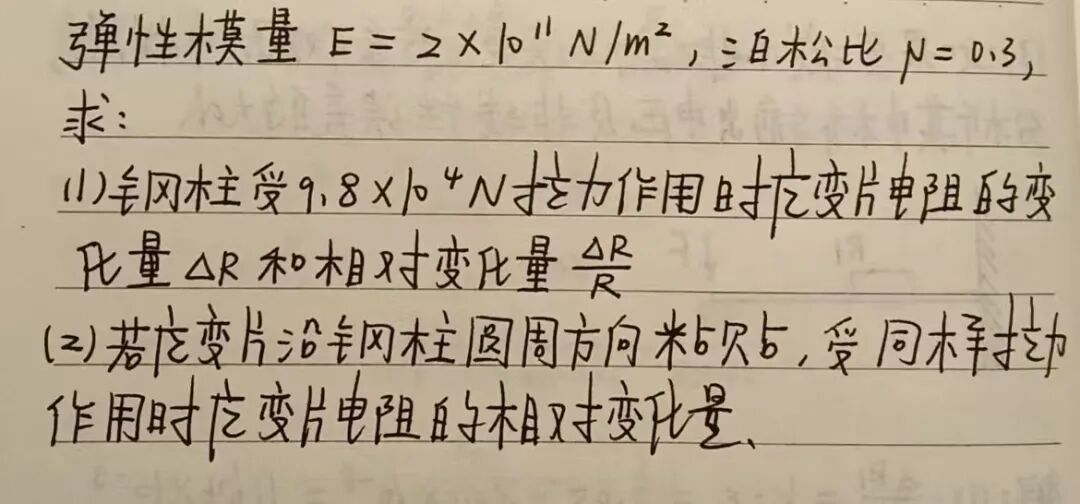 弹性模量 E = 2×10¹¹ N/m², 泊松比 μ = 0.3,
求:
(1)钢柱受9.8×10⁴N拉力作用时应变片电阻的变
化量 ΔR 和相对变化量 ΔR/R
(2)若应变片沿钢柱圆周方向粘贴,受同样拉力
作用时应变片电阻的相对变化量、